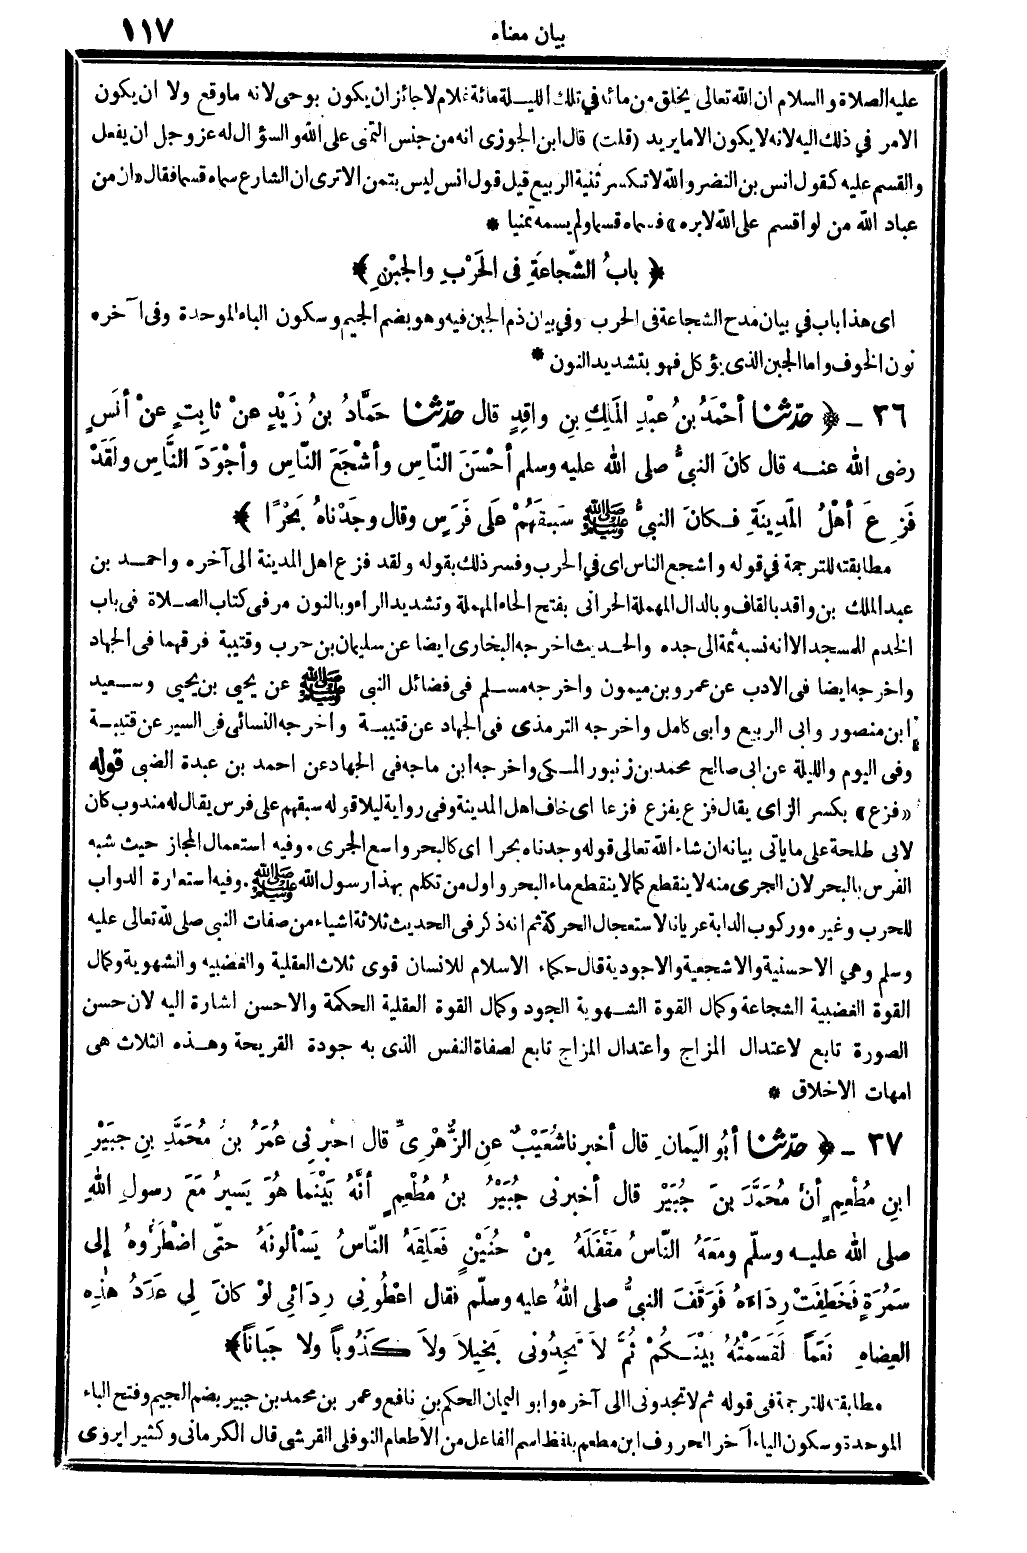 بيان معناه ١١٧
عليه الصلاة والسلام ان الله تعالى يخلق من مائه في تلك الليلة مائة غلام لا جائز ان يكون بوحى لانه ما وقع ولا ان يكون
الامر في ذلك اليه لانه لا يكون الا ما يريد (قلت) قال ابن الجوزى انه من جنس التمنى على الله والسؤال له عز وجل ان يفعل
والقسم عليه كقول انس بن النضر والله لا تكسر ثنية الربيع قيل قول انس ليس بتمن الا ترى ان الشارع سماه قسما فقال «ان من
عباد الله من لو أقسم على الله لابره» فسماه قسما ولم يسمه تمنيا *
﴿ بابُ الشَّجاعَةِ فى الحَرْبِ والجُبْنِ ﴾
اى هذا باب في بيان مدح الشجاعة فى الحرب وفي بيان ذم الجبن فيه وهو بضم الجيم وسكون الباء الموحدة وفى آخره
نون الخوف واما الجبن الذى يؤكل فهو بتشديد النون *
٣٦ ـ ﴿ حدّثنا أحْمَدُ بنُ عبْدِ المَلِكِ بنِ واقِدٍ قال حدّثنا حَمَّادُ بنُ زَيْدٍ عنْ ثابِتٍ عنْ أنَسٍ
رضى الله عنه قال كانَ النبىُّ صلى الله عليه وسلم أحْسَنَ النّاسِ وأشْجَعَ النّاسِ وأجْوَدَ النَّاسِ ولَقَدْ
فَزِعَ أهْلُ المَدِينَةِ فكانَ النبىُّ ﷺ سَبَقَهُمْ علَى فَرَسٍ وقال وجَدْناهُ بَحْرًا ﴾
مطابقته للترجمة في قوله وأشجع الناس اى في الحرب وفسر ذلك بقوله ولقد فزع اهل المدينة الى آخره واحمد بن
عبد الملك بن واقد بالقاف وبالدال المهملة الحرانى بفتح الحاء المهملة وتشديد الراء وبالنون مر فى كتاب الصلاة فى باب
الخدم للمسجد الا انه نسبه ثمة الى جده والحديث اخرجه البخارى ايضا عن سليمان بن حرب وقتيبة فرقهما فى الجهاد
واخرجه ايضا فى الادب عن عمرو بن ميمون واخرجه مسلم فى فضائل النبى ﷺ عن يحيى بن يحيى وسعيد
ابن منصور وابى الربيع وأبى كامل واخرجه الترمذى فى الجهاد عن قتيبة وأخرجه النسائى فى السير عن قتيبة
وفى اليوم والليلة عن ابى صالح محمد بن زنبور المكى واخرجه ابن ماجه فى الجهاد عن احمد بن عبدة الضبى قوله
«فزع» بكسر الزاى يقال فزع يفزع فزعا اى خاف اهل المدينة وفى رواية ليلا قوله سبقهم على فرس يقال له مندوب كان
لابى طلحة على ما يأتى بيانه ان شاء الله تعالى قوله وجدناه بحرا اى كالبحر واسع الجرى . وفيه استعمال المجاز حيث شبه
الفرس بالبحر لان الجرى منه لا ينقطع كما لا ينقطع ماء البحر واول من تكلم بهذا رسول الله ﷺ . وفيه استعارة الدواب
للحرب وغيره وركوب الدابة عريانا لاستعجال الحركة ثم انه ذكر فى الحديث ثلاثة اشياء من صفات النبى صلى لله تعالى عليه
وسلم وهي الاحسنية والاشجعية والاجودية قال حكماء الاسلام للانسان قوى ثلاث العقلية والغضبيه والشهوية وكمال
القوة الغضبية الشجاعة وكمال القوة الشهوية الجود وكمال القوة العقلية الحكمة والاحسن اشارة اليه لان حسن
الصورة تابع لاعتدال المزاج واعتدال المزاج تابع لصفاة النفس الذى به جودة القريحة وهذه الثلاث هى
امهات الاخلاق *
٣٧ ـ ﴿ حدّثنا أبُو اليَمانِ قال أخبرنا شُعَيْبٌ عنِ الزُّهْرِىِّ قال اخبرنى عُمَرُ بنُ مُحَمَّدِ بنِ جبَيْرِ
ابنِ مُطْعِمٍ أنَّ مُحَمَّدَ بنَ جُبَيْرٍ قال أخبرنى جُبَيْرُ بنُ مُطْعِمٍ أنَّهُ بَيْنَما هُوَ يَسيرُ مَعَ رسولِ اللهِ
صلى الله عليه وسلّم ومَعَهُ النّاسُ مَقْفَلَهُ مِنْ حُنَيْنٍ فَعَلِقَهُ النّاسُ يَسْألُونَهُ حتّى اضْطَرُّوهُ إلى
سَمُرَةٍ فَخَطِفَتْ رِدَاءَهُ فَوَقَفَ النبىُّ صلى اللهُ عليه وسلّم فقال اعْطُونِي رِدَائِي لوْ كانَ لِي عَدَدُ هٰذِهِ
العِضاهِ نَعَمًا لَقَسَمْتُهُ بيْنَكُمْ ثُمَّ لاَ تَجِدُونى بَخِيلاً ولاَ كَذُوباً ولا جَباناً﴾
مطابقته للترجمة فى قوله ثم لا تجدونى الى آخره وابو اليمان الحكم بن نافع وعمر بن محمد بن جبير بضم الجيم وفتح الباء
الموحدة وسكون الياء آخر الحروف ابن مطعم بلفظ اسم الفاعل من الاطعام النوفلى القرشى قال الكرمانى وكثير ايروى